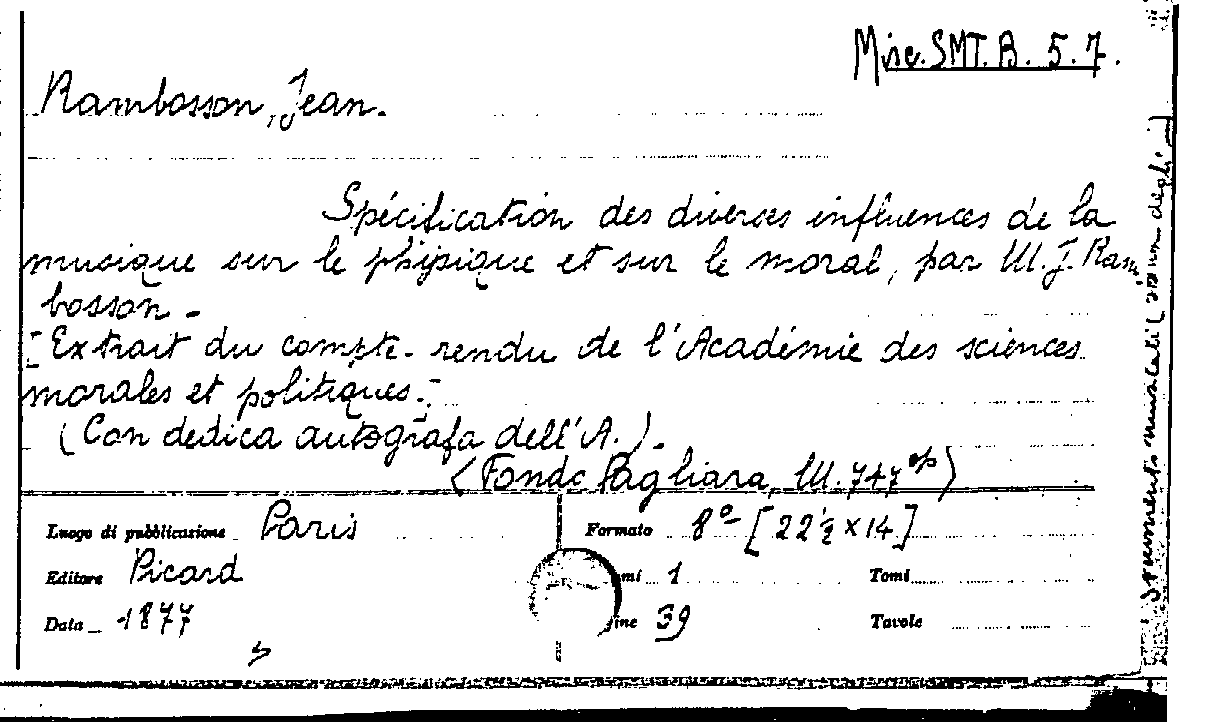 Misc. SMT. B. 5.7.
Rambosson, Jean.
Spécification des diverses influences de la
musique sur le phisique et sur le moral, par M. J. Ram
bosson -
[Extrait du compte-rendu de l'Académie des sciences
morales et politiques.-]
(Con dedica autografa dell'A.).
(Fondo Pagliara, M. 747 )
Luogo di pubblicazione Paris
Formato 8° [22½ x 14]
Editore Picard
mi 1
Tomi
Data 1877
ine 39
Tavole